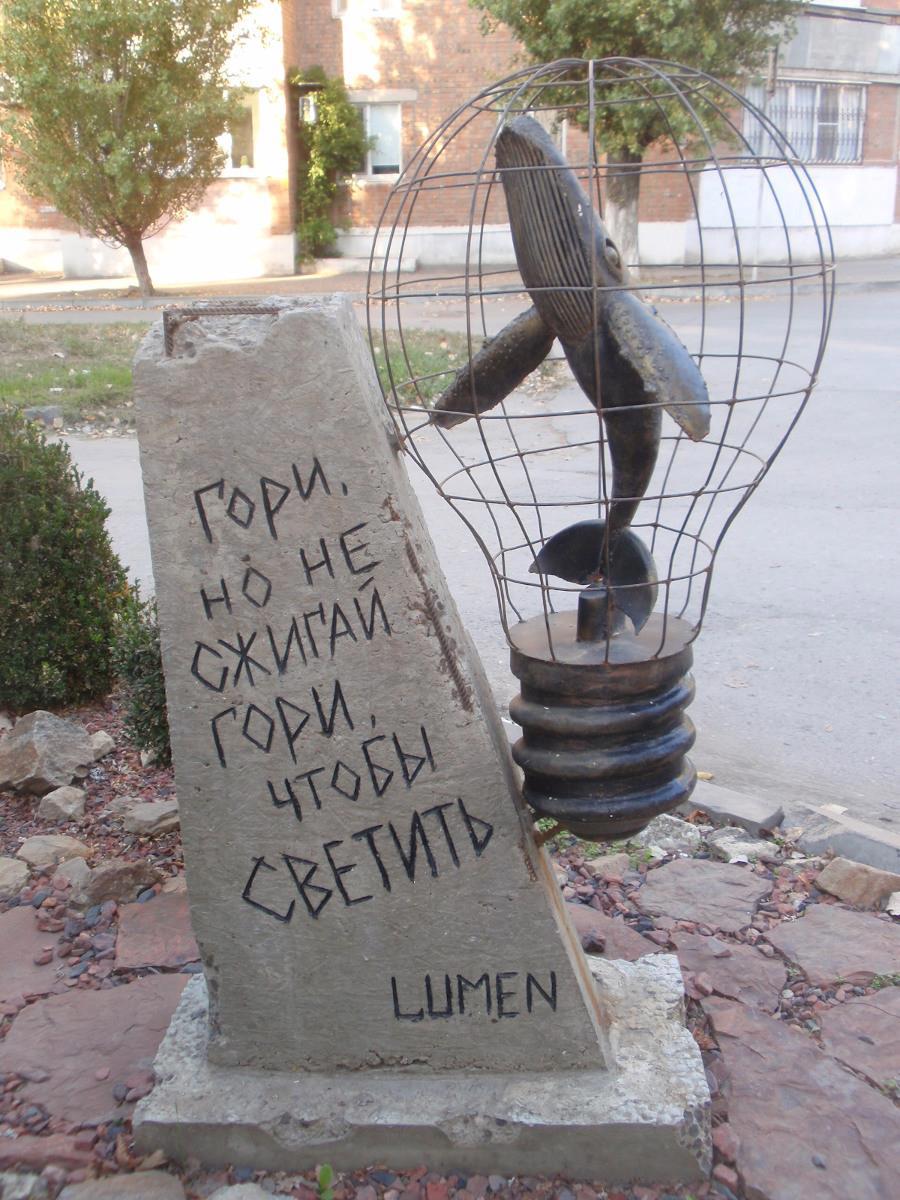 ГОРИ,
НО НЕ
СЖИГАЙ
ГОРИ,
ЧТОБЫ
СВЕТИТЬ
LUMEN